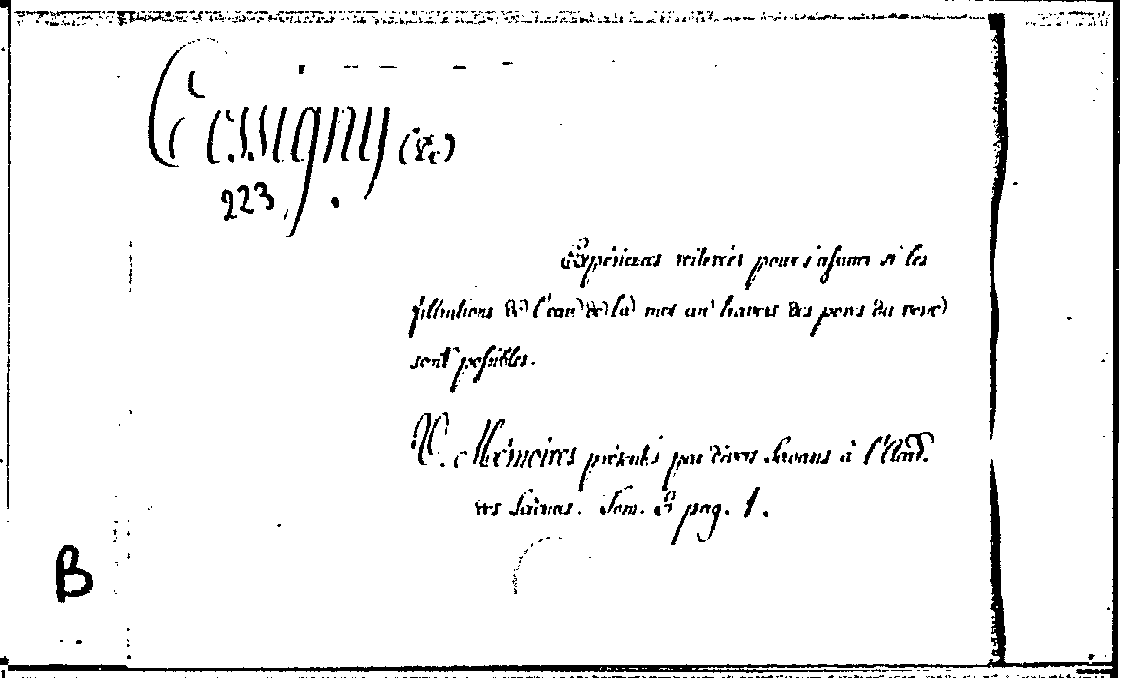 Cossigny (De)
223.
Expériences réiterées pour s'assurer si les
filtrations de l'eau de la mer au travers des pores du verre
sont possibles.
V. Mémoires présentés par divers Savans à l'Acad.
des Sciences. Tom. 3 pag. 1.
B